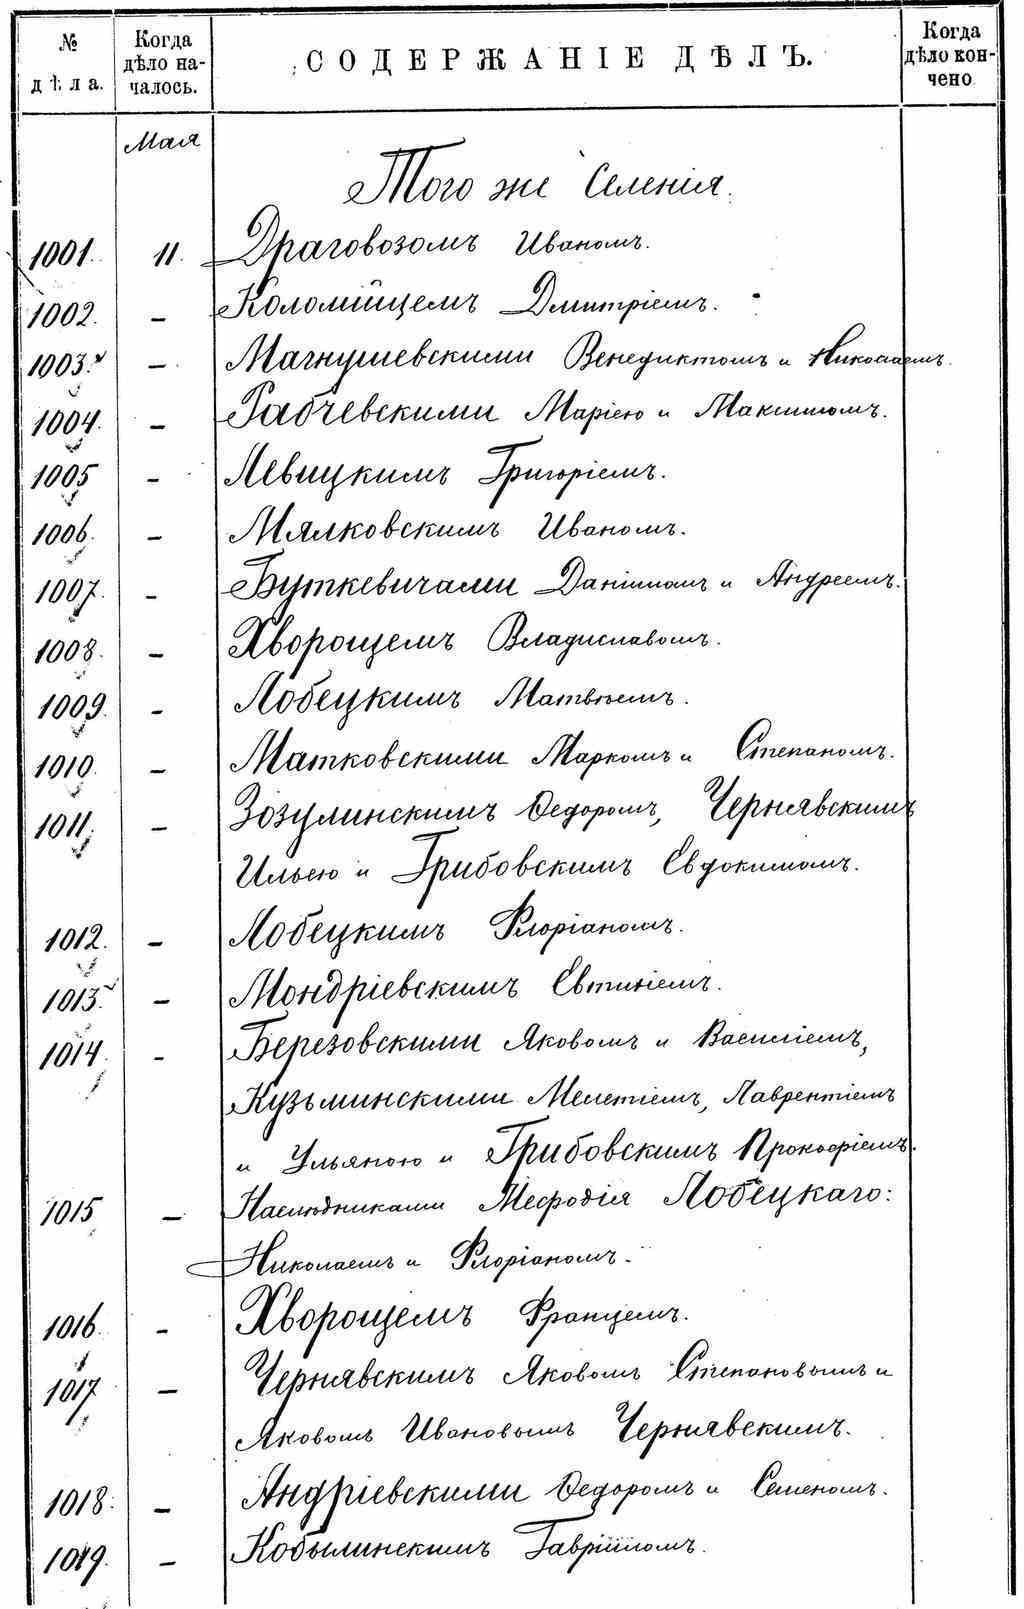 № дѣла.
Когда дѣло началось.
СОДЕРЖАНІЕ ДѢЛЪ.
Когда дѣло кончено
Мая
Того же Селенія.
1001. 11. Драговозомъ Иваномъ.
1002. – Коломійцемъ Дмитріемъ.
1003. – Магнушевскими Венедиктомъ и Николаемъ.
1004. – Рабчевскими Маріею и Максимомъ.
1005 – Левицкимъ Григоріемъ.
1006. – Мялковскимъ Иваномъ.
1007. – Буткевичами Даніиломъ и Андреемъ.
1008. – Хворощемъ Владиславомъ.
1009. – Лобецкимъ Матвѣемъ.
1010. – Матковскими Маркомъ и Степаномъ.
1011. – Зозулинскимъ Ѳедоромъ, Чернявскимъ
Ильею и Грибовскимъ Евдокимомъ.
1012. – Лобецкимъ Флоріаномъ.
1013. – Мондріевскимъ Евтихіемъ.
1014. – Березовскими Яковомъ и Василіемъ,
Кузьминскими Мелетіемъ, Лаврентіемъ
и Ульяною и Грибовскимъ Прокофіемъ.
1015 – Наслѣдниками Мефодія Лобецкаго:
Николаемъ и Флоріаномъ.
1016. – Хворощемъ Францемъ.
1017 – Чернявскимъ Яковомъ Степановымъ и
Яковомъ Ивановымъ Чернявскимъ.
1018. – Андріевскими Ѳедоромъ и Семеномъ.
1019. – Кобылинскимъ Гавріиломъ.